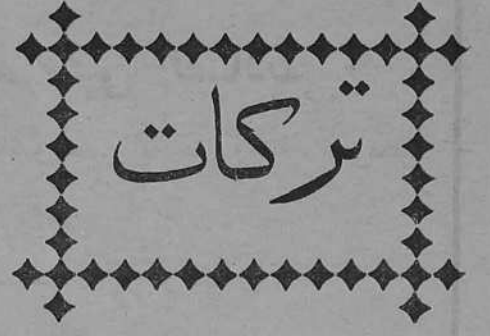 تركات